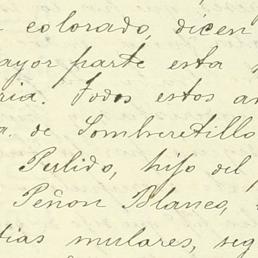 colorado, dicen
ayor parte esta
ria. Todos estos an
a. de Sombreretillo
Pulido, hijo del
Peñon Blanco,
tias mulares, seg